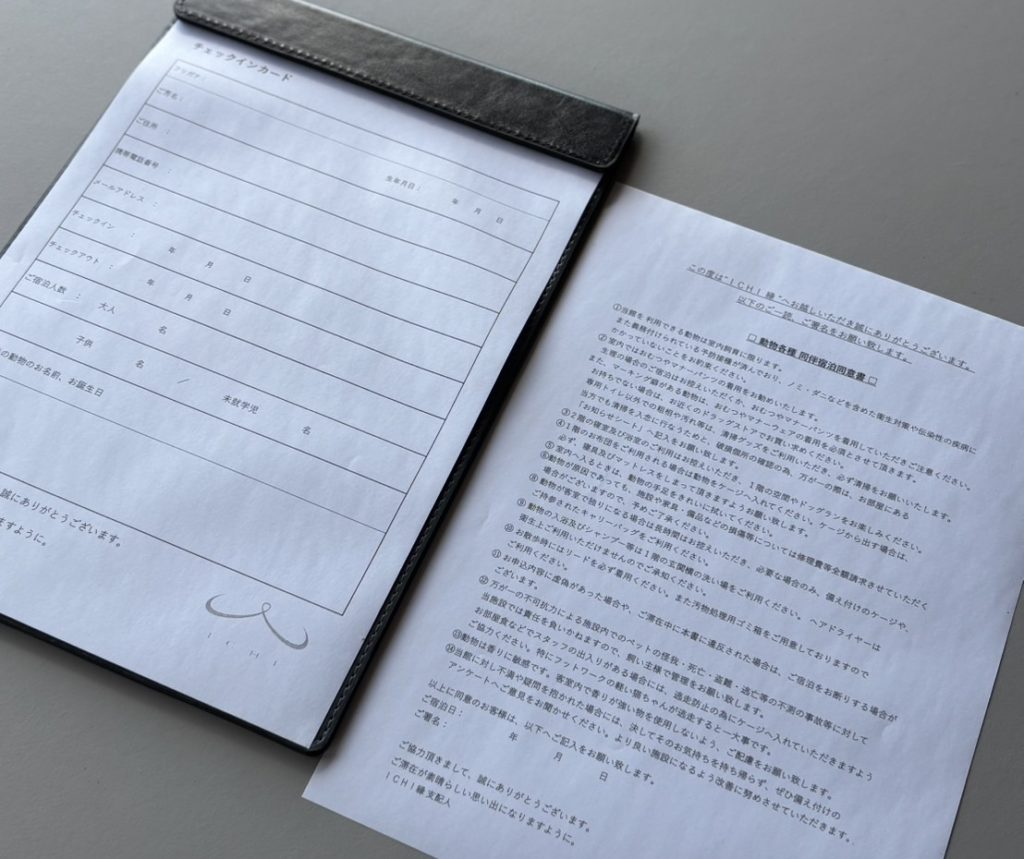 チェックインカード
フリガナ：
ご芳名：
生年月日： 年 月 日
ご住所 ：
携帯電話番号 ：
メールアドレス ：
チェックイン ： 年 月 日
チェックアウト ： 年 月 日
ご宿泊人数 ： 大人 名
子供 名 ／ 未就学児 名
の動物のお名前、お誕生日
誠にありがとうございます。
ますように。
ICHI
この度は"ICHI 縁"へお越しいただき誠にありがとうございます。
以下のご一読、ご署名をお願い致します。
□ 動物各種 同伴宿泊同意書 □
①当館を利用できる動物は室内飼育に限ります。
また義務付けられている予防接種が済んでおり、ノミ、ダニなどを含めた衛生対策や伝染性の疾病に
かかっていないことをお約束ください。
②室内ではおむつやマナーパンツの着用をお勧めいたします。
生理の場合のご宿泊はお控えいただくか、おむつやマナーパンツを着用していただきご注意ください。
また、マーキング癖がある動物は、おむつやマナーウェアの着用を必須とさせて頂きます。
お持ちでない場合は、お近くのドラッグストアでお買い求めください。
専用トイレ以外での粗相や汚れ等は、清掃グッズをご利用いただき、必ず清掃をお願いいたします。
当方でも清掃を入念に行なうためと、破損個所の確認の為、万が一の際は、お部屋にある
「お知らせシート」へ記入をお願い致します。
③２階の寝室及び浴室のご利用はお控えいただき、１階の空間やドッグランをお楽しみください。
④１階のお布団をご利用される場合は動物をケージへ入れてください。ケージから出す場合は、
必ず、寝具及びマットレスをしまって頂きますようお願い致します。
⑤室内へ入るときは、動物の手足をきれいに拭いてください。
⑥動物が原因であっても、施設や家具・備品などの損傷等については修理費等全額請求させていただく
場合がございますので、予めご了承ください。
⑧動物が客室で独りになる場合は長時間はお控えいただき、必要な場合のみ、備え付けのケージや、
ご持参されたキャリーバッグをご利用ください。
⑨動物の入浴及びシャンプー等は１階の玄関横の洗い場をご利用ください。ヘアドライヤーは
衛生上ご利用いただけませんのでご承知ください。
⑩お散歩時にはリードを必ず着用ください。また汚物処理用ゴミ箱をご用意しておりますので
ご利用ください。
⑪お申込内容に虚偽があった場合や、ご滞在中に本書に違反された場合は、ご宿泊をお断りする場合が
ございます。
⑫万が一の不可抗力による施設内でのペットの怪我・死亡・盗難・逃亡等の不測の事故等に対して
当施設では責任を負いかねますので、飼い主様で管理をお願い致します。
お部屋食などでスタッフの出入りがある場合には、逃走防止の為にケージへ入れていただきますよう
ご協力ください。特にフットワークの軽い猫ちゃんが逃走すると一大事です。
⑬動物は香りに敏感です。客室内で香りが強い物を使用しないよう、ご配慮をお願い致します。
⑭当館に対し不満や疑問を抱かれた場合には、決してそのお気持ちを持ち帰らず、ぜひ備え付けの
アンケートへご意見をお聞かせください。より良い施設になるよう改善に努めさせていただきます。
以上に同意のお客様は、以下へご記入をお願い致します。
ご宿泊日： 年 月 日
ご署名：
ご協力頂きまして、誠にありがとうございます。
ご滞在が素晴らしい思い出になりますように。
ICHI 縁 支配人